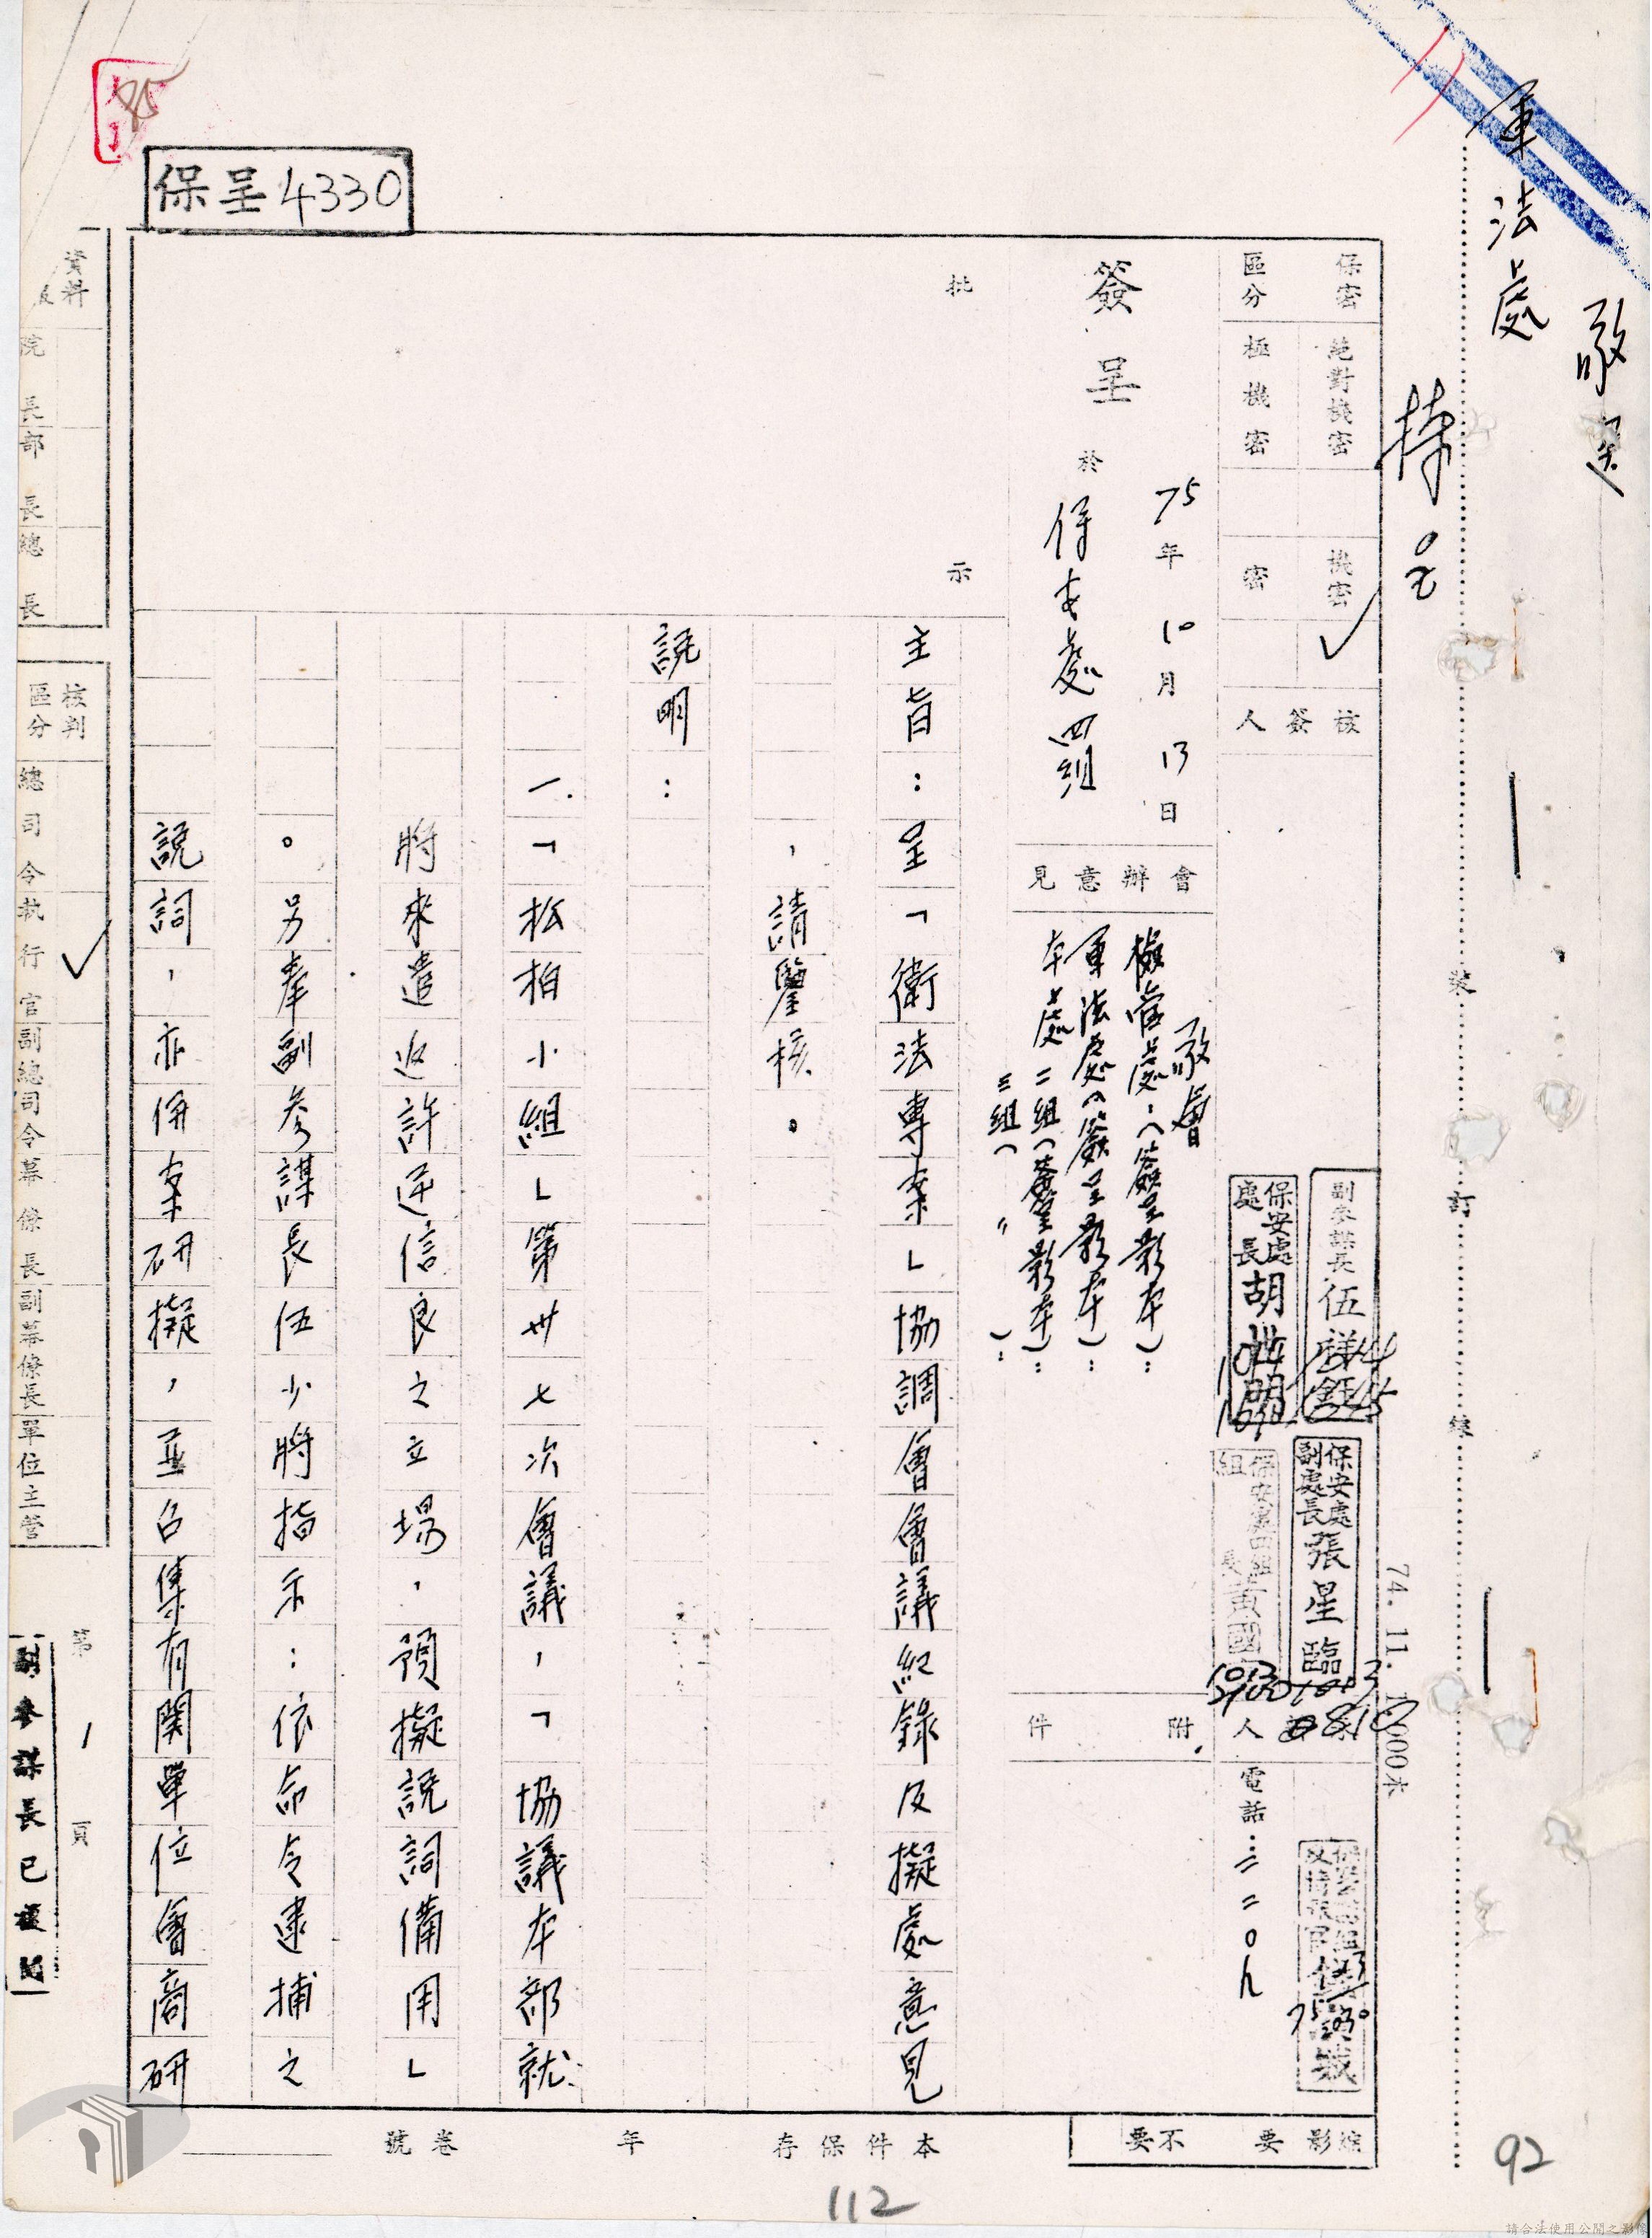 軍法處
敬送
保密區分
絕對機密
極機密
機密 ✓
密
核簽人
副參謀長 伍
保安處處長 胡
保安處副處長 張星臨
74. 11.
電話：
簽呈
於
75年10月13日
保安處四組
會辦意見
敬會
檢管處：（簽呈影本）：
軍法處（簽呈影本）：
本處二組（簽呈影本）：
三組（　〃　）：
附件
批示
主旨：呈「衛法專案」協調會會議紀錄及擬處意見
，請鑒核。
說明：
一、「松柏小組」第卅七次會議，「協議本部就
將來遣返許逆信良之立場，預擬說詞備用」
。另奉副參謀長伍少將指示：依命令逮捕之
說詞，亦併案研擬，並召集有關單位會商研
保呈4330
資料
院長
部長
總長
核判區分
總司令
執行官 ✓
副總司令
幕僚長
副幕僚長
單位主管
第1頁
副參謀長已核閱
裝
訂
線
本件保存　年
卷號
綜影
要
不要
112
92
請合法使用公開之影像